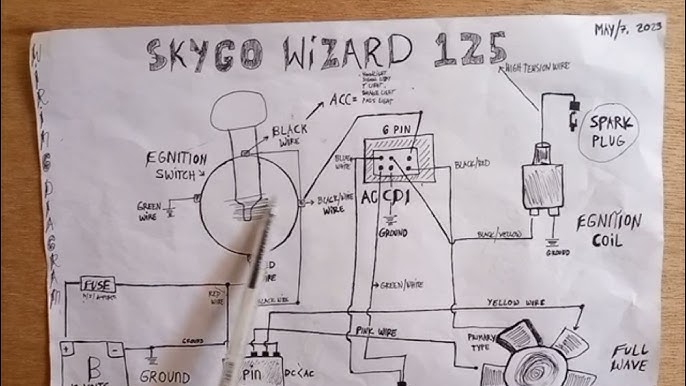 MAY/7, 2023
SKYGO WiZARD 125
WIRING DIAGRAM
HIGH TENSION WIRE
ACC=
HEADLIGHT
BRAKE LIGHT
PARK LIGHT
BLACK
WIRE
6 PIN
SPARK
PLUG
EGNITION
SWITCH
BLACK/RED
AC CDI
GREEN
WIRE
BLACK/WHITE
WIRE
GROUND
EGNITION
COIL
BLACK/YELLOW
GROUND
GREEN/WHITE
FUSE
RED
WIRE
BLACK WIRE
YELLOW WIRE
PINK WIRE
PRIMARY
TYPE
FULL
WAVE
GROUND
+
-
B
GROUND
PIN
DC<AC